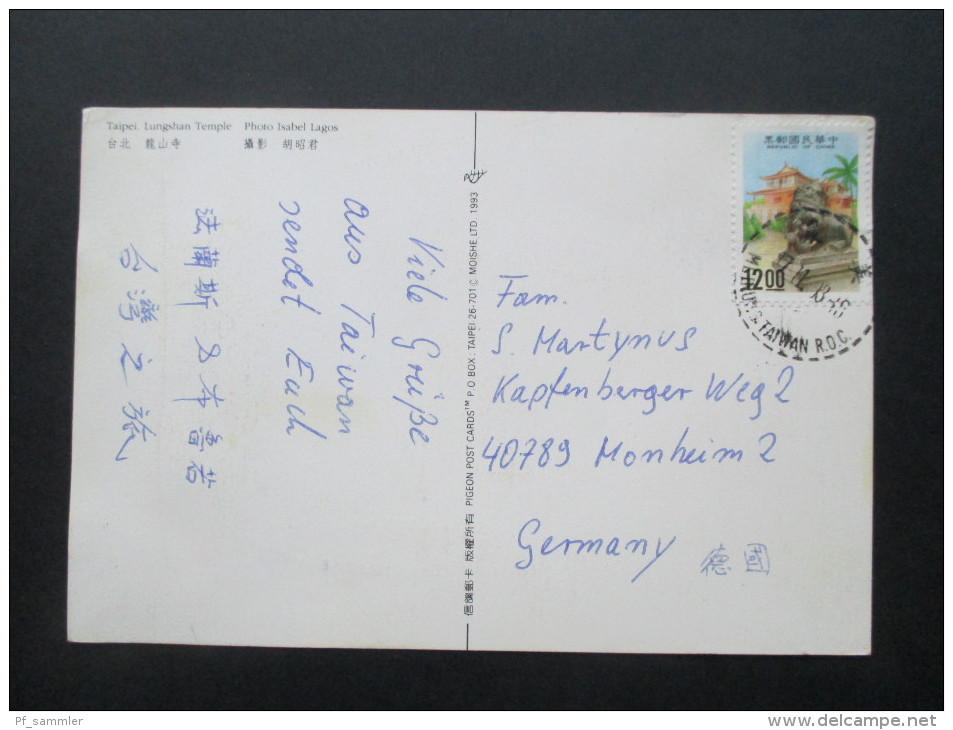 Taipei. Lungshan Temple Photo Isabel Lagos
台北 龍山寺 攝影 胡昭君
Viele Grüße
aus Taiwan
sendet Euch
法蘭斯
台灣之旅
信鴿郵卡 版權所有 PIGEON POST CARDS™ P.O BOX: TAIPEI 26-701 © MOISHE.LTD. 1993
票郵國民華中
REPUBLIC OF CHINA
12.00
TAIWAN R.O.C.
Fam.
S. Martynus
Kapfenberger Weg 2
40789 Monheim 2
Germany 德國
Pf_sammler
www.delcampe.net